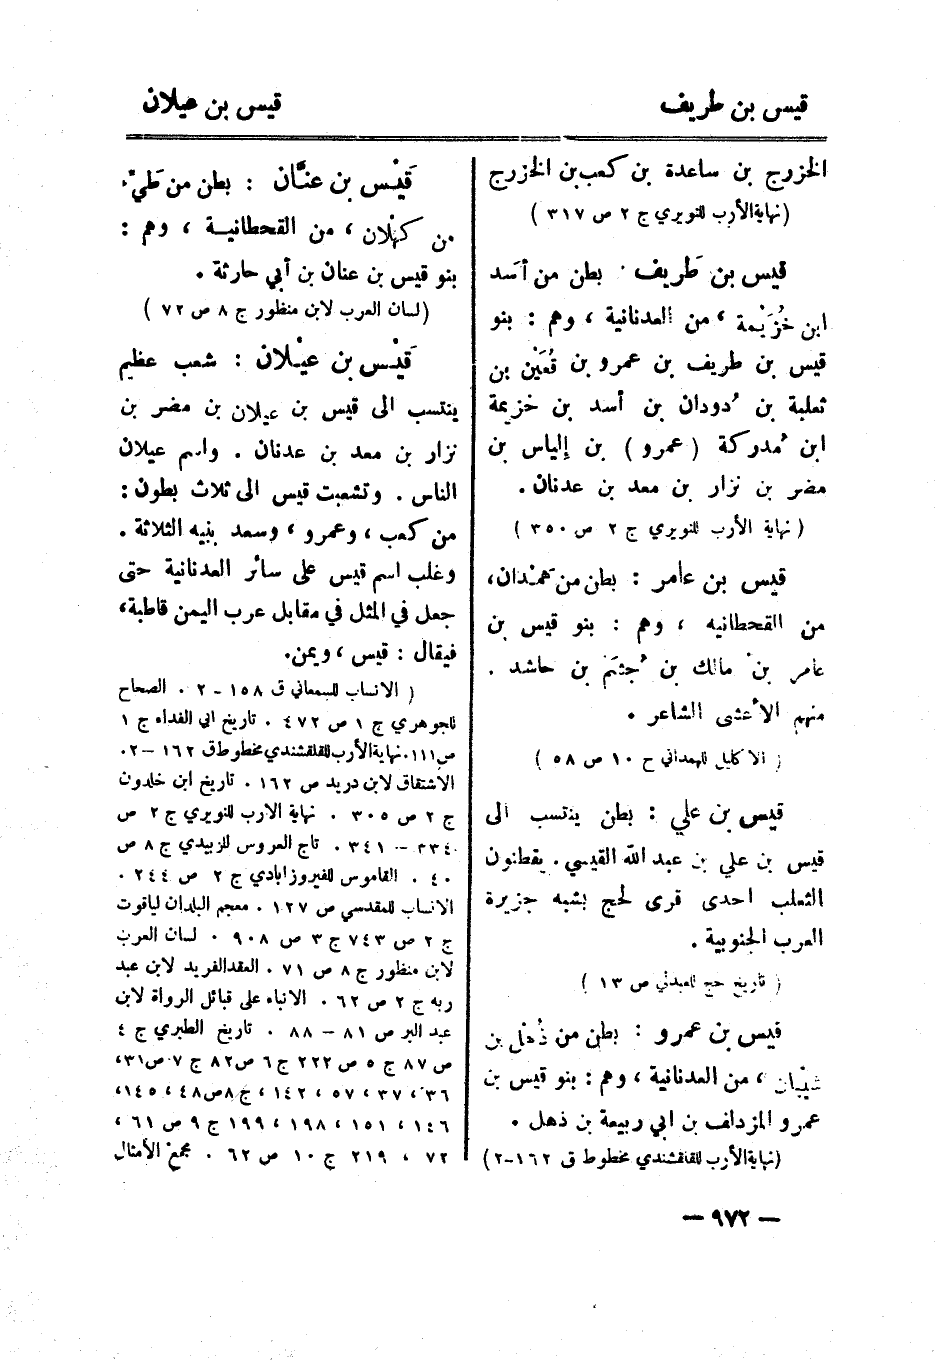 قيس بن طريف
قيس بن عيلان
الخزرج بن ساعدة بن كعب بن الخزرج
(نهاية الأرب للنويري ج ٢ ص ٣١٧)
قيس بن طَريف : بطن من أسد
ابن خُزَيْمة ، من العدنانية ، وهم : بنو
قيس بن طريف بن عمرو بن قُعَيْن بن
ثعلبة بن دُودان بن أسد بن خزيمة
ابن مُدركة ( عمرو ) بن إلياس بن
مضر بن نزار بن معد بن عدنان .
( نهاية الأرب للنويري ج ٢ ص ٣٥٠ )
قيس بن عامر : بطن من هَمْدان،
من القحطانيه ، وهم : بنو قيس بن
عامر بن مالك بن جُشَم بن حاشد .
منهم الأعشى الشاعر .
( الاكليل للهمداني ج ١٠ ص ٥٨ )
قيس بن علي : بطن ينتسب الى
قيس بن علي بن عبد الله القيسي . يقطنون
الثعلب احدى قرى لحج بشبه جزيرة
العرب الجنوبية .
( تاريخ لحج للعبدلي ص ١٣ )
قيس بن عمرو : بطن من ذُهْل بن
شَيْبان ، من العدنانية ، وهم : بنو قيس بن
عمرو المزدلف بن ابي ربيعة بن ذهل .
(نهاية الأرب للقلقشندي مخطوط ق ١٦٢-٢)
قَيْس بن عنَّان : بطن من طَيِّء
من كَهْلان ، من القحطانية ، وهم :
بنو قيس بن عنان بن أبي حارثة .
(لسان العرب لابن منظور ج ٨ ص ٧٢ )
قَيْس بن عَيْلان : شعب عظيم
ينتسب الى قيس بن عيلان بن مضر بن
نزار بن معد بن عدنان . واسم عيلان
الناس . وتشعبت قيس الى ثلاث بطون :
من كعب ، وعمرو ، وسعد بنيه الثلاثة .
وغلب اسم قيس على سائر العدنانية حتى
جعل في المثل في مقابل عرب اليمن قاطبة،
فيقال : قيس ، ويمن.
( الانساب للسمعاني ق ١٥٨ - ٢ . الصحاح
للجوهري ج ١ ص ٤٧٢ . تاريخ ابي الفداء ج ١
ص ١١١. نهاية الأرب للقلقشندي مخطوط ق ١٦٢ - ٢.
الاشتقاق لابن دريد ص ١٦٢ . تاريخ ابن خلدون
ج ٢ ص ٣٠٥ . نهاية الارب للنويري ج ٢ ص
٣٣٤ - ٣٤١ . تاج العروس للزبيدي ج ٨ ص
٤٠ . القاموس للفيروزابادي ج ٢ ص ٢٤٤ .
الانساب للمقدسي ص ١٢٧ . معجم البلدان لياقوت
ج ٢ ص ٧٤٣ ج ٣ ص ٩٠٨ . لسان العرب
لابن منظور ج ٨ ص ٧١ . العقد الفريد لابن عبد
ربه ج ٢ ص ٦٢ . الانباه على قبائل الرواة لابن
عبد البر ص ٨١ - ٨٨ . تاريخ الطبري ج ٤
ص ٨٧ ج ٥ ص ٢٢٢ ج ٦ ص ٨٢ ج ٧ ص ٣١،
٣٦ ، ٣٧ ، ٥٧ ، ١٤٢ ، ج ٨ ص ٤٨ ، ١٤٥،
١٤٦ ، ١٥١ ، ١٩٨ ، ١٩٩ ج ٩ ص ٦١ ،
٧٢ ، ٢١٩ ج ١٠ ص ٦٢ . مجمع الأمثال
— ٩٧٢ —